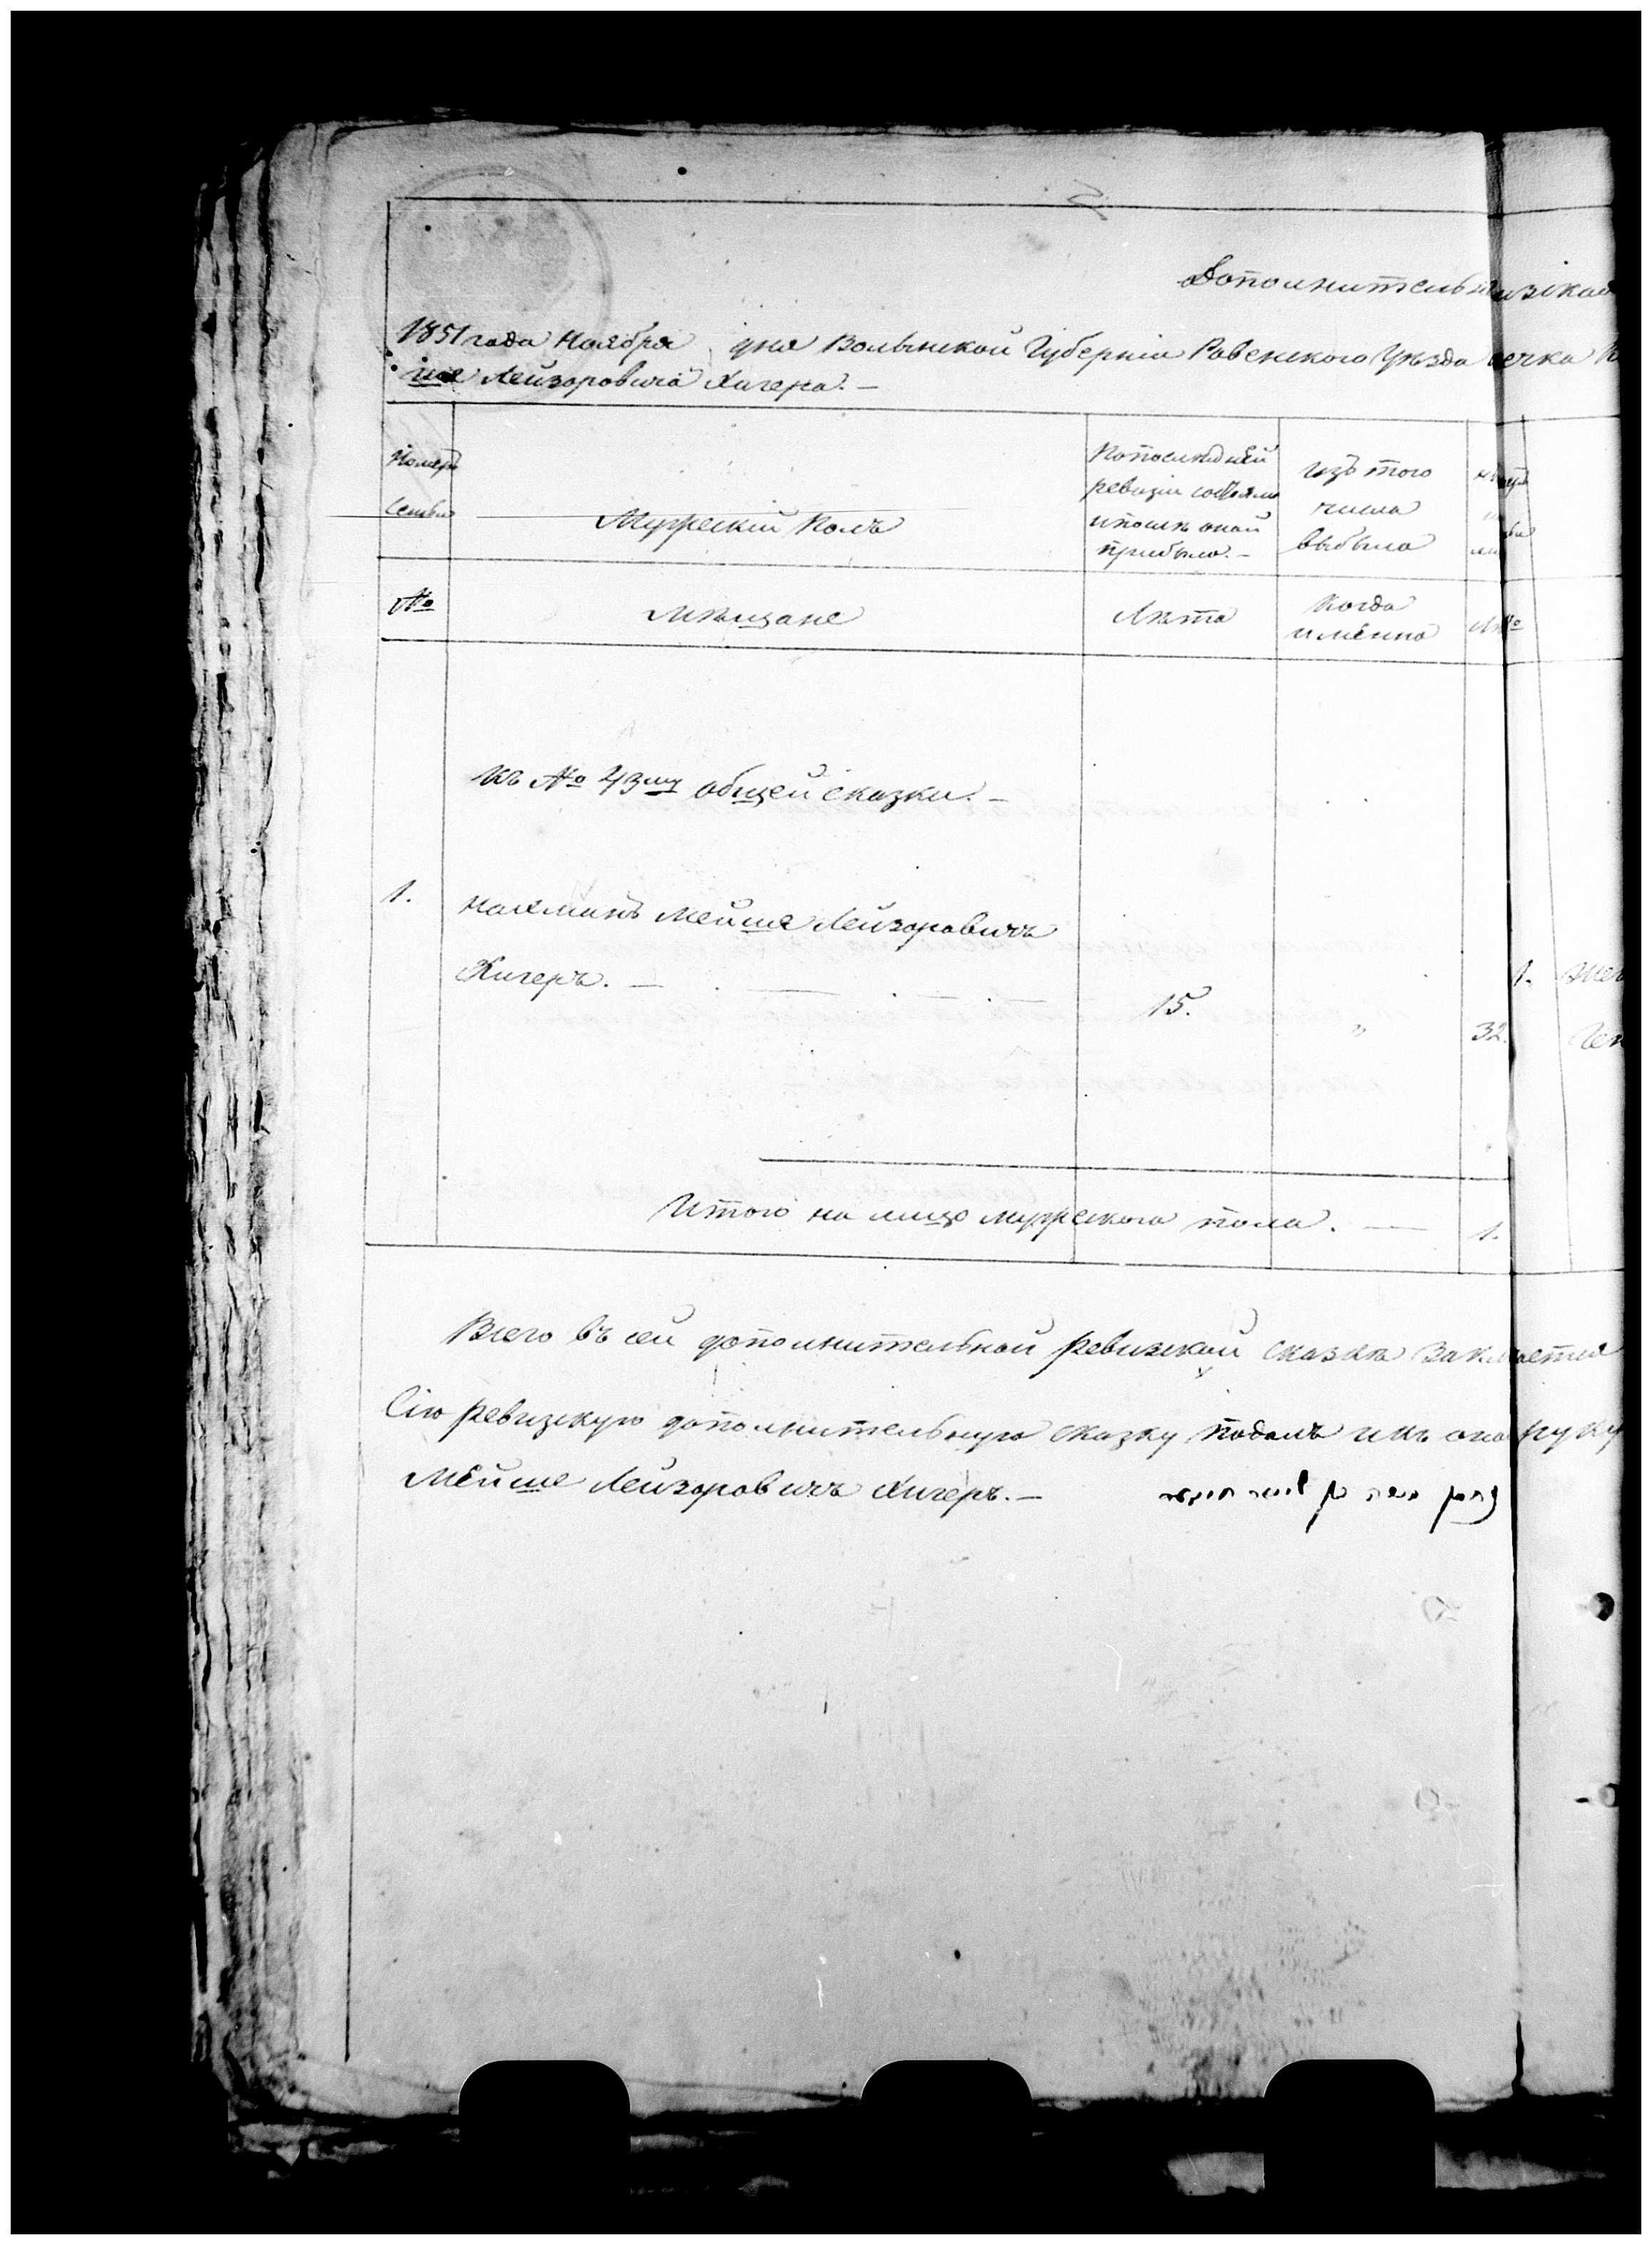 Дополнительн
1851 года Ноября дня Волынской Губерніи Ровенского Уѣзда
ше Лейзоровича Хигера. —
Номеръ
Семьи
Мужескій Полъ
По последней
ревизіи состояло
и после оной
прибыло. —
Изъ того
числа
выбыло
№
Мѣщане
Лѣта
Когда
имѣнно
къ № 43му общей сказки. —
1.
Нахманъ Мейше Лейзоровичъ
Хигеръ. —
15.
"
32.
1.
Итого на лицо мужеского пола. — 1.
Всего въ сей дополнительной ревизской сказкѣ
Сію ревизскую дополнительную сказку подалъ руку
Мейше Лейзоровичъ Хигеръ. —